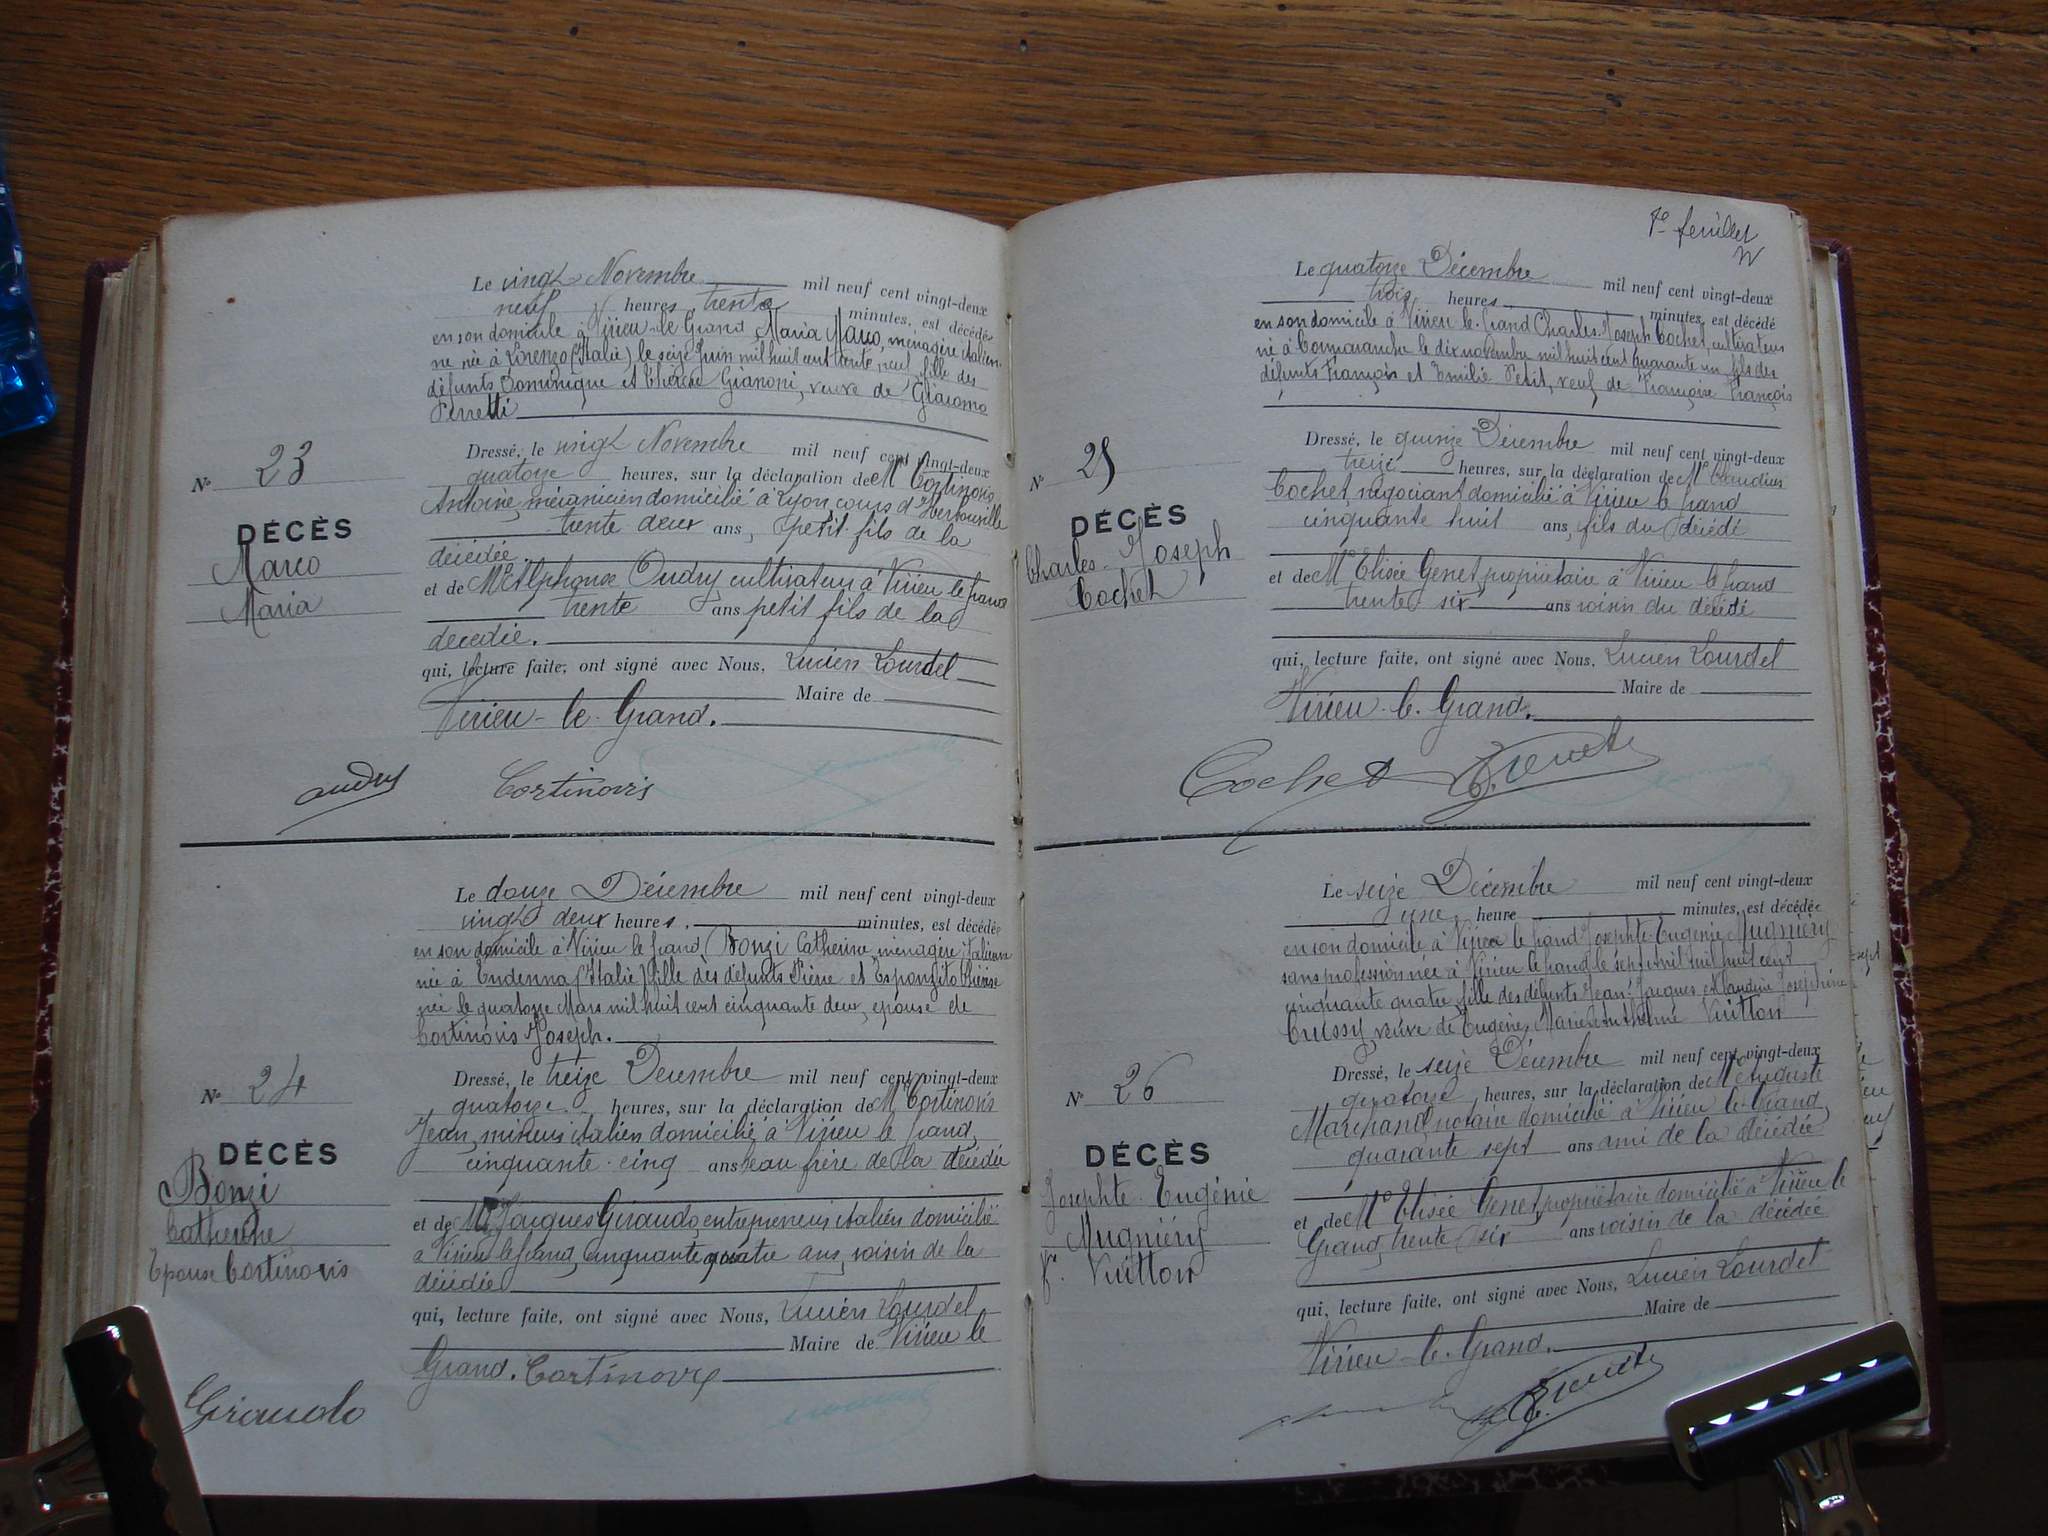 Le vingt Novembre mil neuf cent vingt-deux
neuf heures, trente minutes, est décédée
en son domicile à Virieu-le-Grand Maria Marco, ménagère italien-
ne née à Lorenzo (Italie) le seize Juin mil huit cent trente neuf, fille des
défunts Dominique et Thérèse Gianoni, veuve de Giacomo
Perretti
N° 23
DÉCÈS
Marco
Maria
Dressé, le vingt Novembre mil neuf cent vingt-deux
quatorze heures, sur la déclaration de Mr Cortinovis
Antoine, mécanicien domicilié à Lyon, cours d'Herbouville
trente deux ans, petit fils de la
décédée
et de Mr Alphonse Oudry, cultivateur à Virieu le Grand
trente ans petit fils de la
décédée.
qui, lecture faite, ont signé avec Nous, Lucien Lourdel
Maire de
Virieu-le-Grand.
oudry Cortinovis
Le douze Décembre mil neuf cent vingt-deux
vingt deux heures, minutes, est décédée
en son domicile à Virieu le Grand Bonzi Catherine, ménagère italienne
née à Endenna (Italie) fille des défunts Pierre et Thérèse
née le quatorze Mars mil huit cent cinquante deux, épouse de
Cortinovis Joseph.
N° 24
DÉCÈS
Bonzi
Catherine
Epouse Cortinovis
Dressé, le treize Décembre mil neuf cent vingt-deux
quatorze heures, sur la déclaration de Mr Cortinovis
Jean, mineur italien domicilié à Virieu le Grand,
cinquante-cinq ans beau frère de la décédée
et de Mr Jacques Giraudo, entrepreneur italien domicilié
à Virieu le Grand, cinquante quatre ans, voisin de la
décédée
qui, lecture faite, ont signé avec Nous, Lucien Lourdel
Maire de Virieu le
Grand. Cortinovis
Giraudo
7e feuillet
Le quatorze Décembre mil neuf cent vingt-deux
trois heures minutes, est décédé
en son domicile à Virieu-le-Grand Charles-Joseph Cochet, cultivateur
né à Cormaranche le dix novembre mil huit cent quarante un, fils des
défunts François et Emilie Petit, veuf de Françoise François
N° 25
DÉCÈS
Charles-Joseph
Cochet
Dressé, le quinze Décembre mil neuf cent vingt-deux
treize heures, sur la déclaration de Mr Claudius
Cochet, négociant domicilié à Virieu le Grand
cinquante huit ans, fils du décédé
et de Mr Elisée Genet, propriétaire à Virieu le Grand
trente six ans voisin du décédé
qui, lecture faite, ont signé avec Nous, Lucien Lourdel
Maire de
Virieu-le-Grand.
Cochet E. Genet
Le seize Décembre mil neuf cent vingt-deux
une heure minutes, est décédée
en son domicile à Virieu le Grand Josephte-Eugénie Mugniéry
sans profession née à Virieu le Grand le sept avril mil huit cent
cinquante quatre, fille des défunts Jean-Jacques et Claudine Joséphine
Cussy, veuve de Eugène, Marie Vuitton
N° 26
DÉCÈS
Josephte-Eugénie
Mugniéry
Ve Vuitton
Dressé, le seize Décembre mil neuf cent vingt-deux
quatorze heures, sur la déclaration de Mr Auguste
Marchand, notaire domicilié à Virieu-le-Grand,
quarante sept ans ami de la décédée
et de Mr Elisée Genet, propriétaire domicilié à Virieu le
Grand, trente six ans voisin de la décédée
qui, lecture faite, ont signé avec Nous, Lucien Lourdel
Maire de
Virieu-le-Grand.
E. Genet